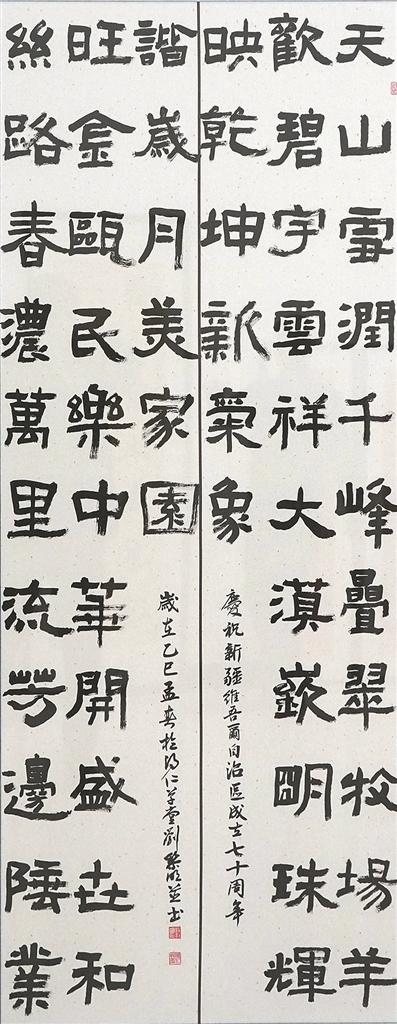 天山雪潤千峰疊翠牧場羊
歡碧宇雲祥大漠嵌明珠輝
映乾坤新氣象
慶祝新疆維吾爾自治區成立七十周年
絲路春濃萬里流芳邊陲業
旺金甌民樂中華開盛世和
諧歲月美家園
歲在乙巳孟春於仁草堂劉並書